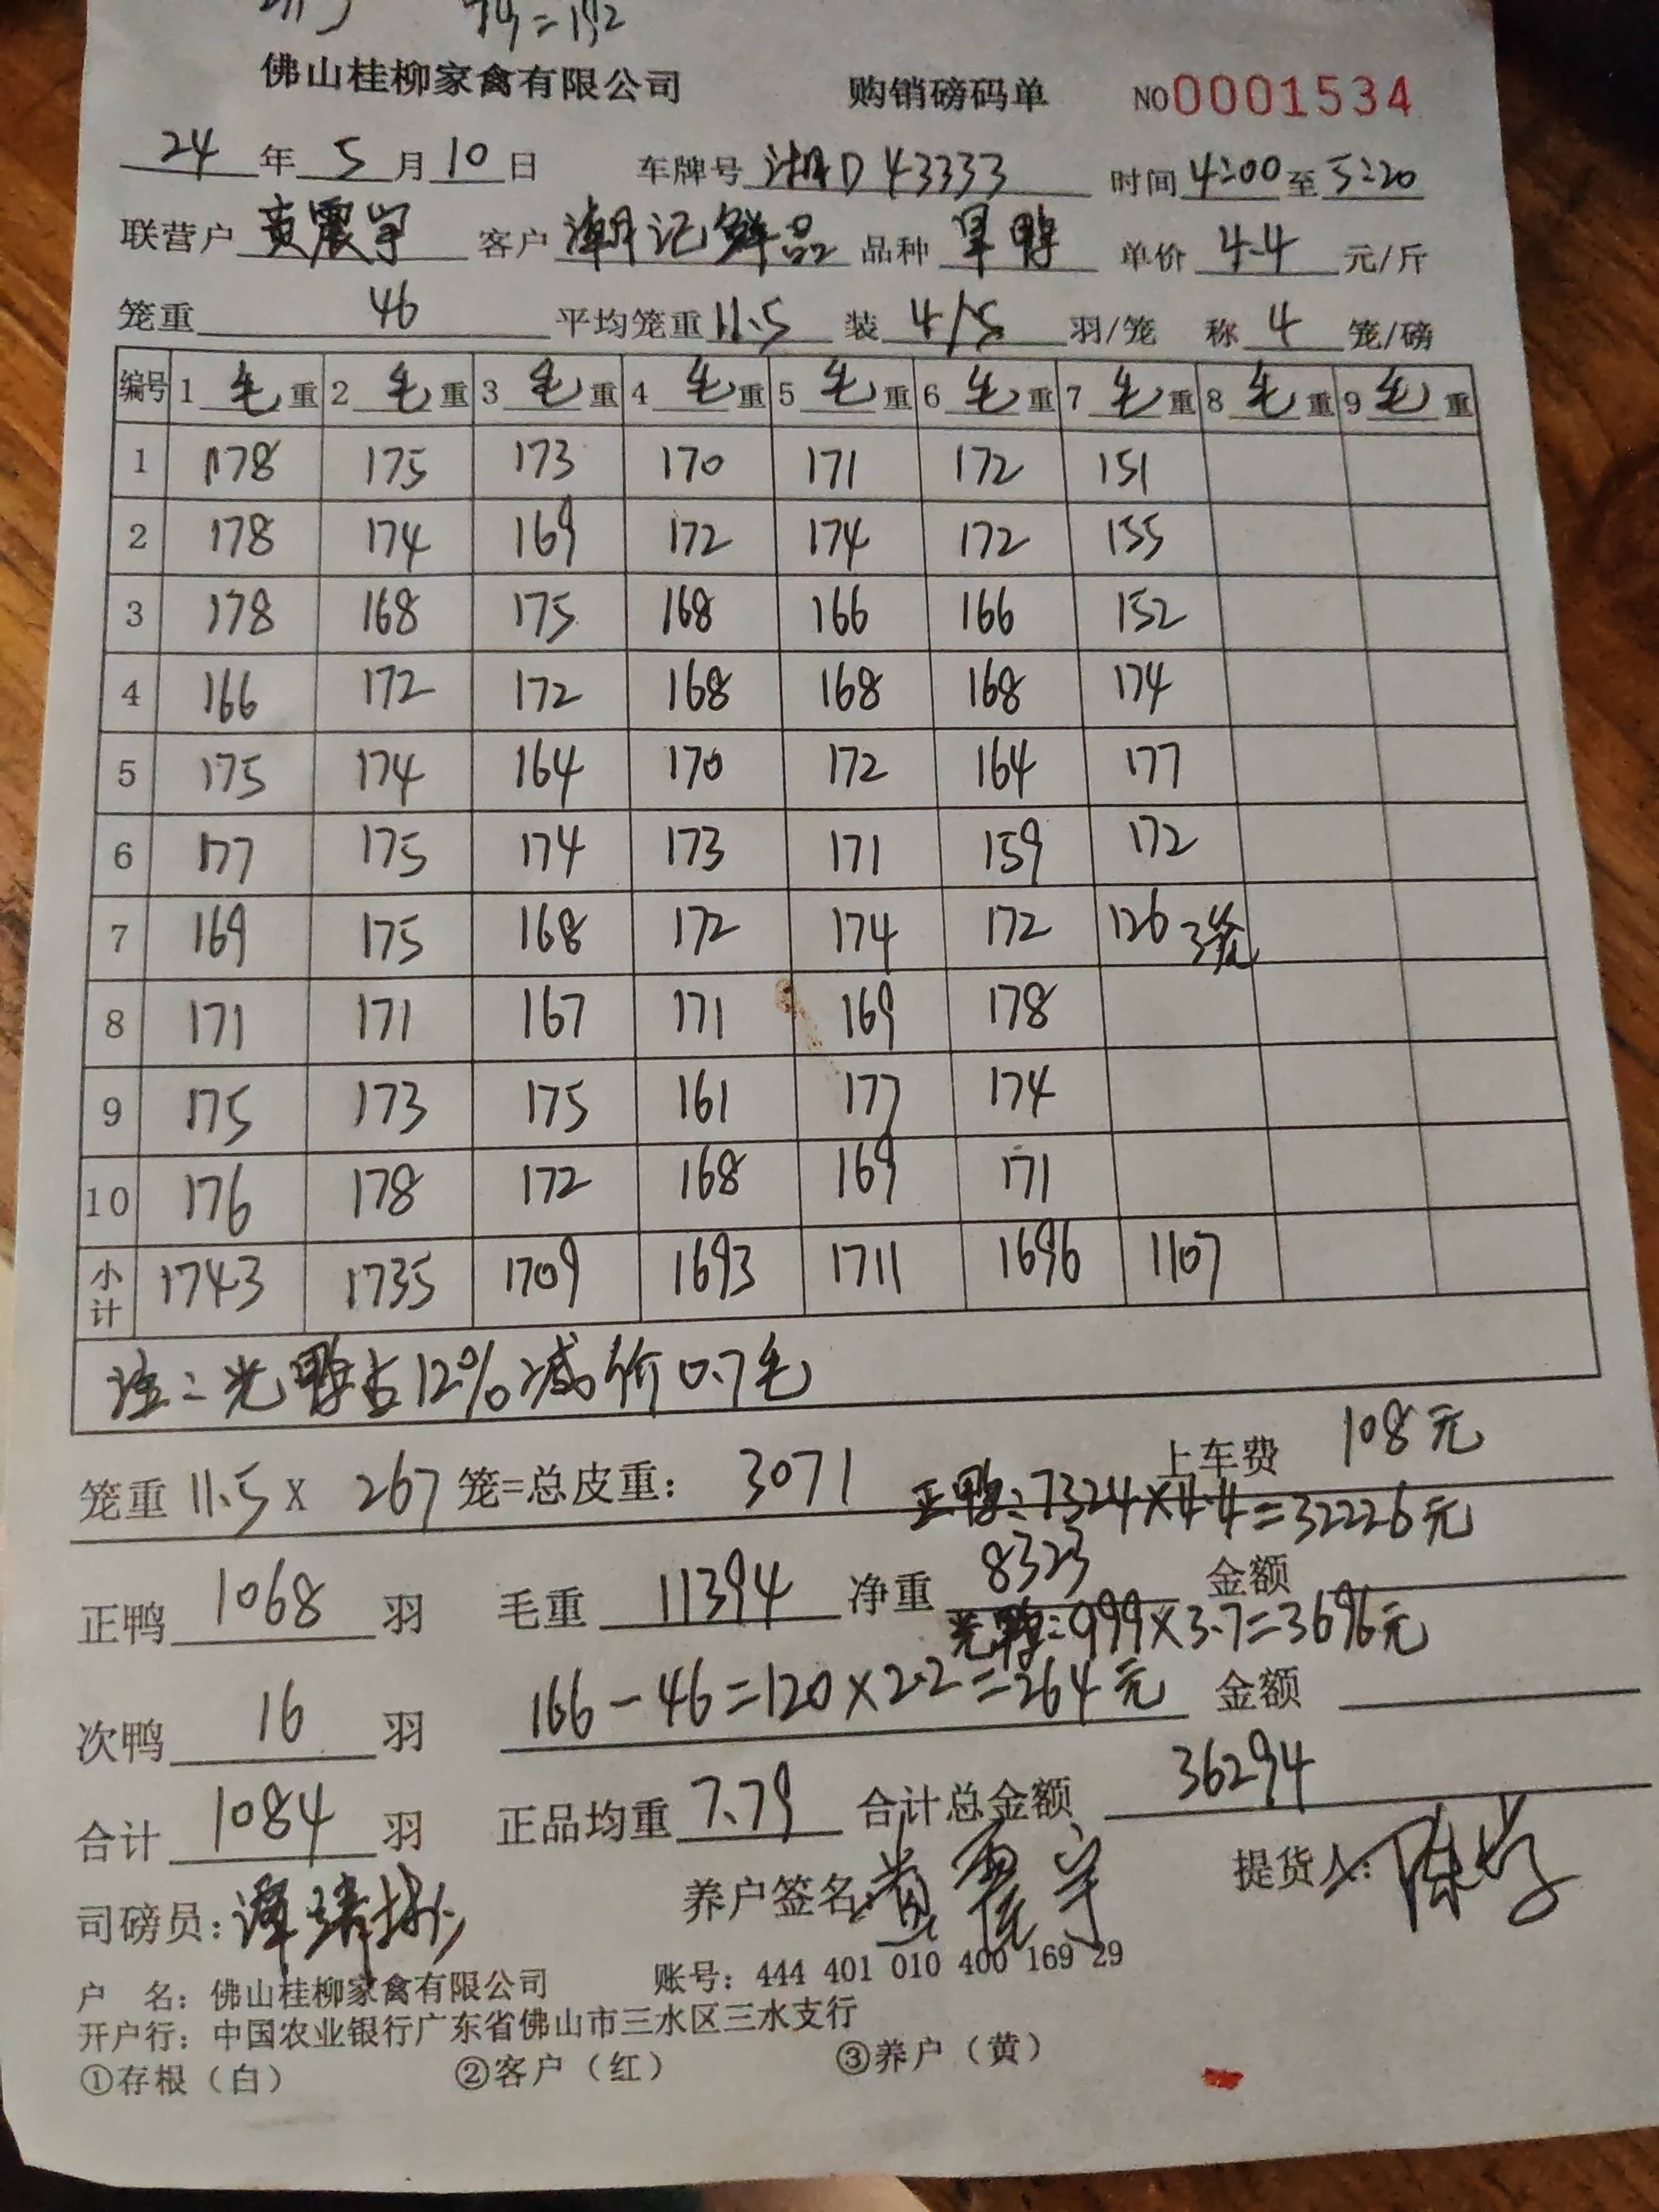 74=192
佛山桂柳家禽有限公司 购销磅码单 NO0001534
24年5月10日 车牌号 湘D43333 时间4:00至5:20
联营户 黄震宇 客户 潮记鲜品 品种 旱鸭 单价 4.4 元/斤
笼重 46 平均笼重11.5 装 4/5 羽/笼 称 4 笼/磅
编号 1 毛重 2 毛重 3 毛重 4 毛重 5 毛重 6 毛重 7 毛重 8 毛重 9 毛重
1 178 175 173 170 171 172 151
2 178 174 169 172 174 172 155
3 178 168 175 168 166 166 152
4 166 172 172 168 168 168 174
5 175 174 164 170 172 164 177
6 177 175 174 173 171 159 172
7 169 175 168 172 174 172 126 3笼
8 171 171 167 171 169 178
9 175 173 175 161 177 174
10 176 178 172 168 169 171
小计 1743 1735 1709 1693 1711 1696 1107
注:光鸭占12%减价0.7毛
笼重 11.5 X 267 笼=总皮重: 3071 上车费 108元
正鸭:7324×4.4=32226元
正鸭 1068 羽 毛重 11394 净重 8323 金额
光鸭:999×3.7=3696元
次鸭 16 羽 166-46=120×2.2=264元 金额
合计 1084 羽 正品均重 7.79 合计总金额 36294
司磅员: 养户签名 黄震宇 提货人:
户 名: 佛山桂柳家禽有限公司 账号: 444 401 010 400 169 29
开户行: 中国农业银行广东省佛山市三水区三水支行
①存根（白） ②客户（红） ③养户（黄）